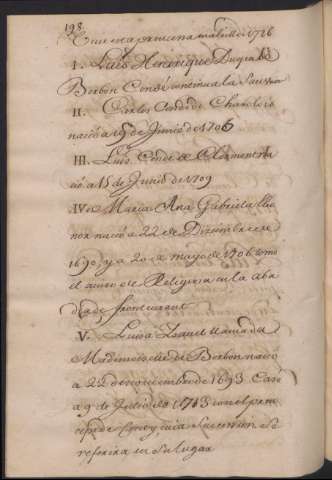 198.
I. Luis Henrrique Duque de
Borbon Conde continua la Sucesion
II. Carlos Conde de Charolois
nació a 19 de Junio de 1700
III. Luis Conde de Clermont na
ció a 15 de Junio de 1709
IV. Maria Ana Gabriela Eleo
nor nació a 22 de Diziembre de
1690, y a 20 de mayo de 1706 tomo
el auito de Religiosa en la aba
dia de frontevraut
V. Luisa Isauel llamada
Mademoiselle de Borbon nació
a 22 de nouiembre de 1693 Casó
a 9 de Julio de 1713 con el prin
cipe de Conty cuia Sucesion se
referira en su lugar